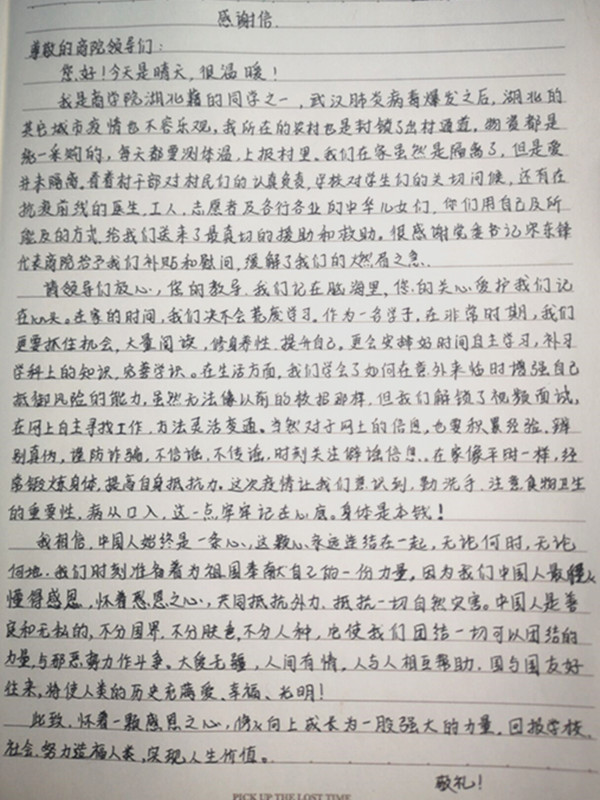 感谢信
尊敬的商院领导们：
您好！今天是晴天，很温暖！
我是商学院湖北籍的同学之一，武汉肺炎病毒爆发之后，湖北的
其它城市疫情也不容乐观，我所在的农村也是封锁了出村通道，物资都是
统一采购的，每天都要测体温，上报村里。我们在家虽然是隔离了，但是爱
并未隔离，看着村干部对村民们的认真负责，学校对学生们的关切问候，还有在
抗疫前线的医生，工人，志愿者及各行各业的中华儿女们，你们用自己及所
能及的方式，给我们送来了最真切的援助和救助。很感谢党委书记宋东锋
代表商院给予我们补贴和慰问，缓解了我们的燃眉之急。
请领导们放心，您的教导，我们记在脑海里，您的关心爱护我们记
在心里。在家的时间，我们决不会荒废学习。作为一名学子，在非常时期，我们
更要抓住机会，大量阅读，修身养性，提升自己。更会安排好时间自主学习，补习
学科上的知识，完善学识。在生活方面，我们学会了如何在意外来临时增强自己
抵御风险的能力，虽然无法像以前的校招那样，但我们解锁了视频面试，
在网上自主寻找工作，方法灵活变通。当然对于网上的信息，也要积累经验，辨
别真伪，谨防诈骗，不信谣，不传谣，时刻关注辟谣信息。在家像平时一样，经
常锻炼身体，提高自身抵抗力。这次疫情让我们意识到，勤洗手，注意食物卫生
的重要性，病从口入，这一点牢牢记在心底。身体是本钱！
我相信，中国人始终是一条心，这颗心永远连结在一起，无论何时，无论
何地，我们时刻准备着为祖国奉献自己的一份力量。因为我们中国人最
懂得感恩，怀着感恩之心，共同抵抗外力，抵抗一切自然灾害。中国人是善
良和无私的，不分国界，不分肤色，不分人种，也使我们团结一切可以团结的
力量，与邪恶势力作斗争。大爱无疆，人间有情，人与人相互帮助，国与国友好
往来，将使人类的历史充满爱、幸福、光明！
此致，怀着一颗感恩之心，修心向上成长为一股强大的力量，回报学校，
社会，努力造福人类，实现人生价值。
敬礼！
PICK UP THE LOST TIME